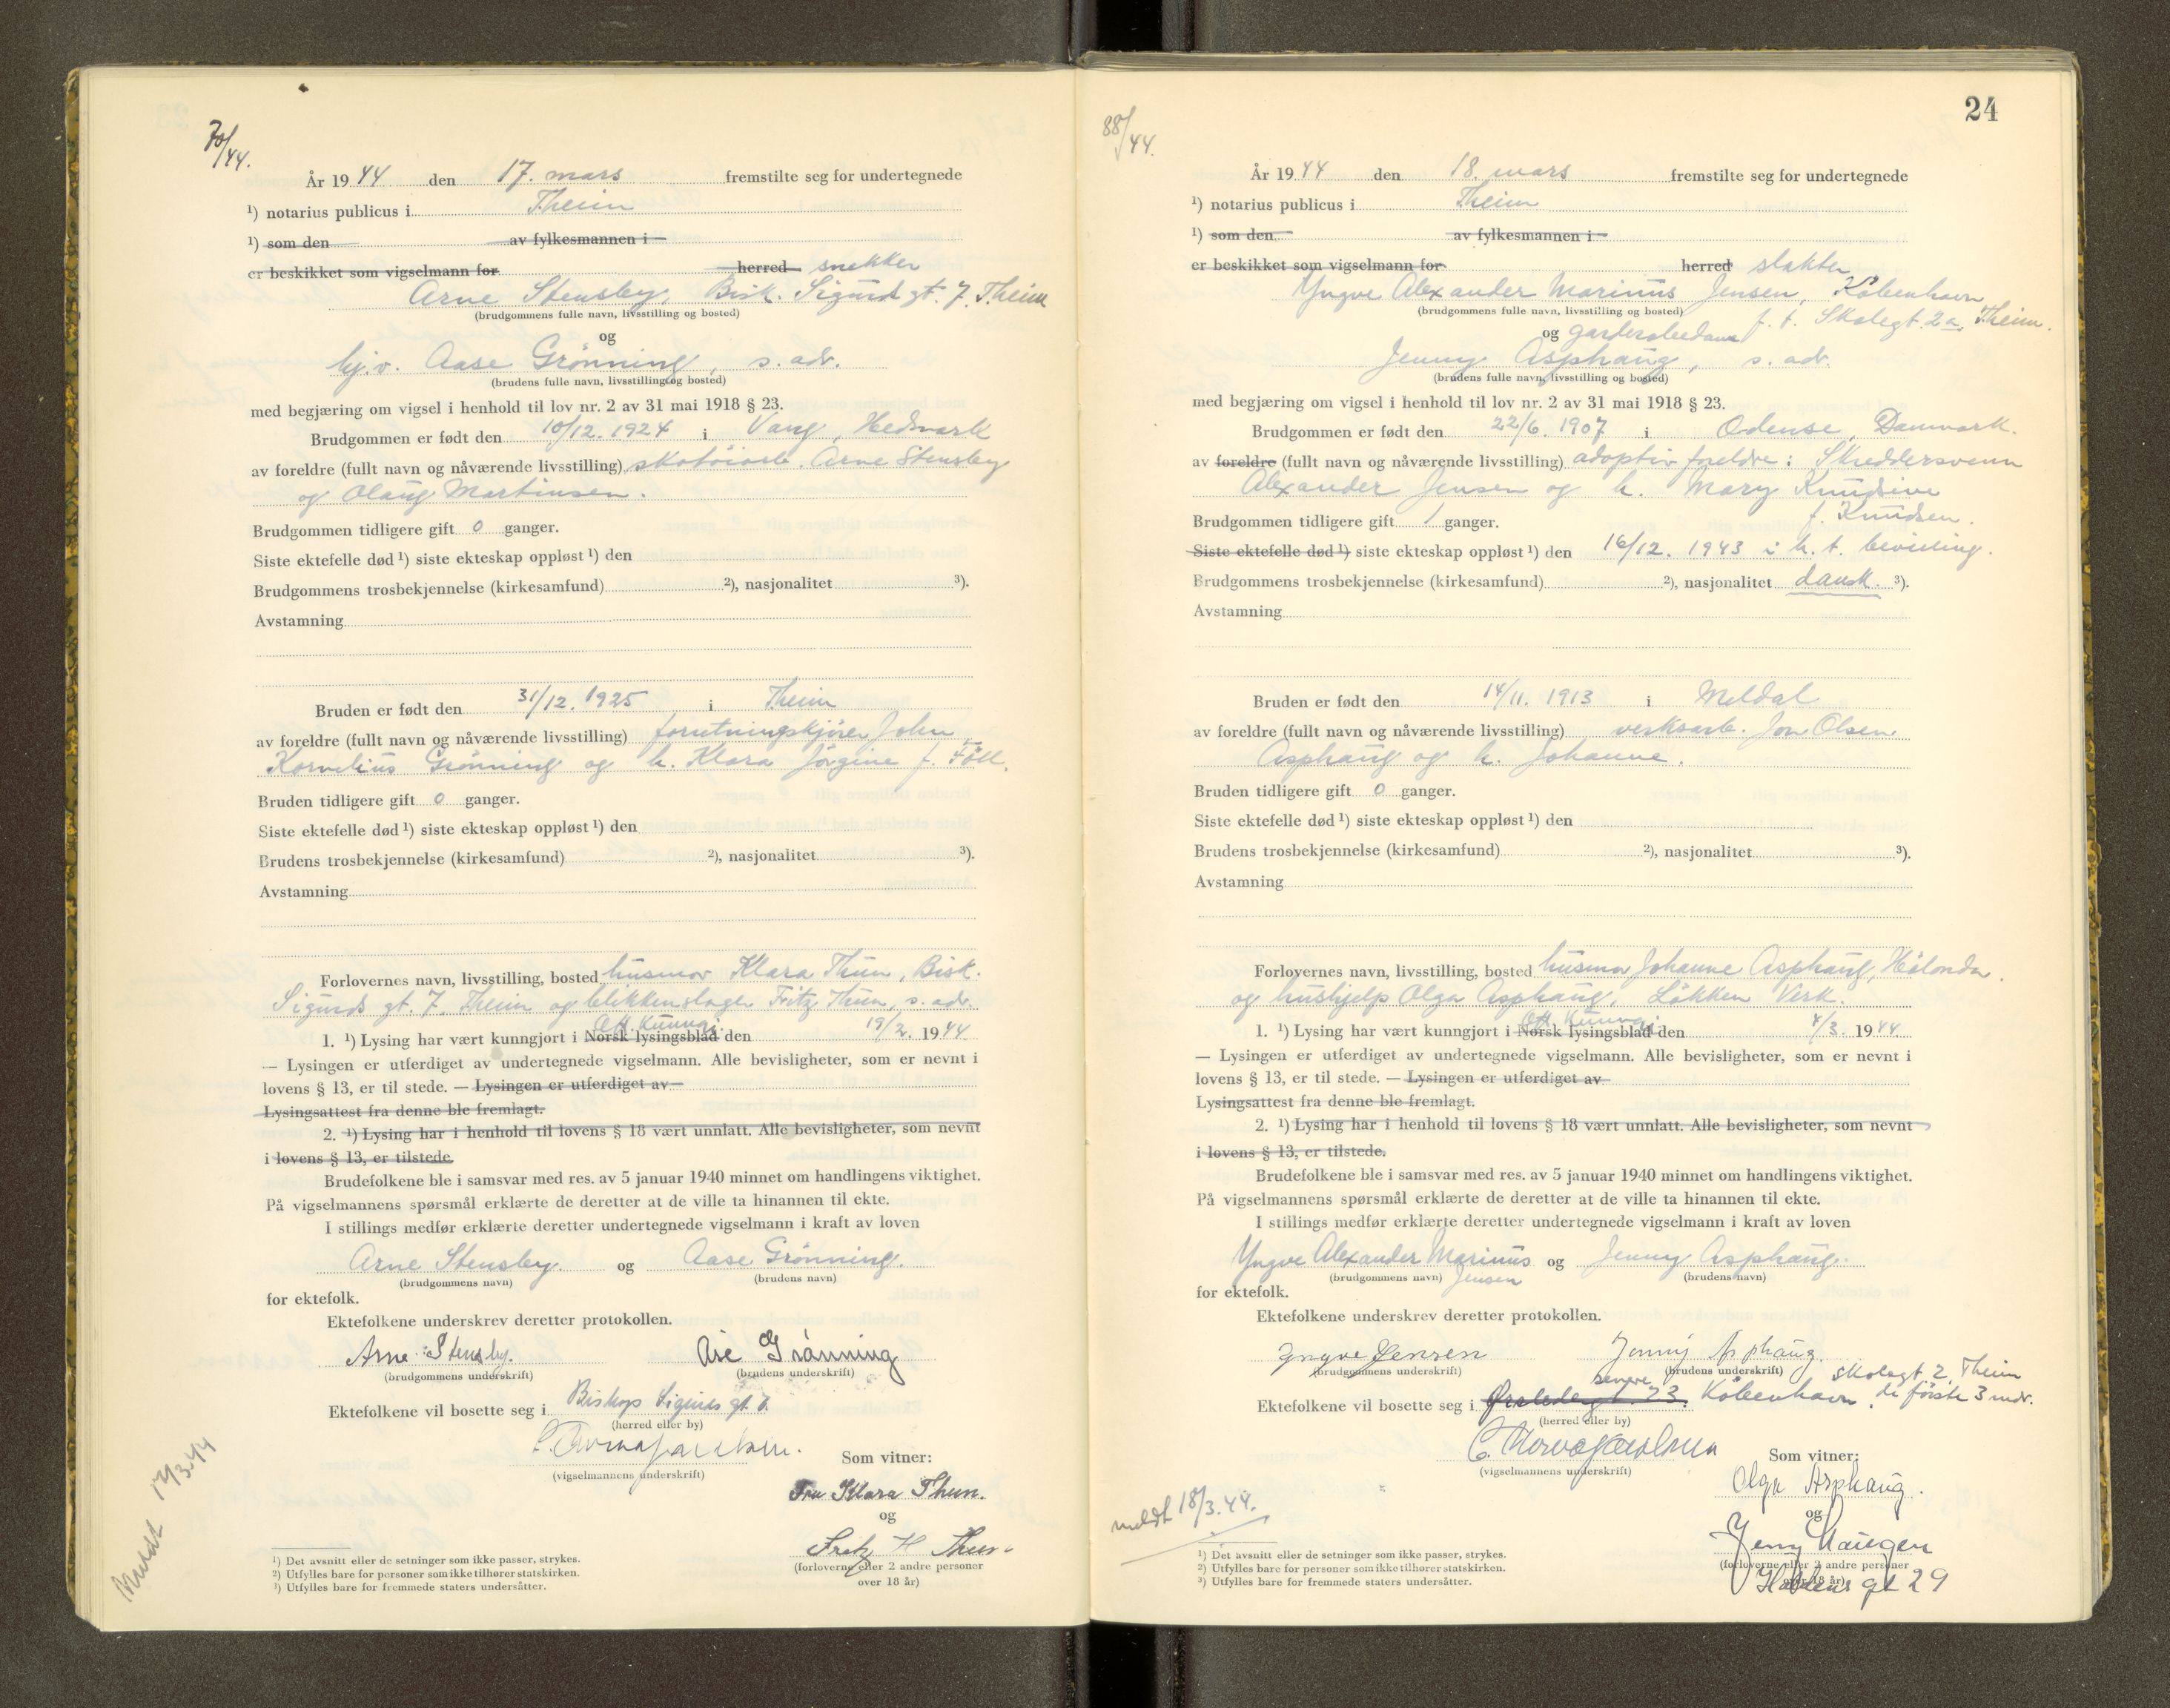 70/44.
År 1944 den 17. mars fremstilte seg for undertegnede
¹) notarius publicus i Theim
¹) som den av fylkesmannen i
er beskikket som vigselmann for herred snekker
Arne Stensby, Bisk. Sigurds gt. 7. Theim
(brudgommens fulle navn, livsstilling og bosted)
og
hj.v. Aase Grönning, s. adr.
(brudens fulle navn, livsstilling og bosted)
med begjæring om vigsel i henhold til lov nr. 2 av 31 mai 1918 § 23.
Brudgommen er født den 10/12. 1924 i Vang, Hedmark
av foreldre (fullt navn og nåværende livsstilling) skotöiarb. Arne Stensby
og Olaug Martinsen.
Brudgommen tidligere gift 0 ganger.
Siste ektefelle død ¹) siste ekteskap oppløst ¹) den
Brudgommens trosbekjennelse (kirkesamfund) ²), nasjonalitet ³).
Avstamning
Bruden er født den 31/12. 1925 i Theim
av foreldre (fullt navn og nåværende livsstilling) forretningskjörer John
Kornelius Grönning og h. Klara Jörgine f. Föll.
Bruden tidligere gift 0 ganger.
Siste ektefelle død ¹) siste ekteskap oppløst ¹) den
Brudens trosbekjennelse (kirkesamfund) ²), nasjonalitet ³).
Avstamning
Forlovernes navn, livsstilling, bosted husmor Klara Thun, Bisk.
Sigurds gt. 7. Theim og blikkenslager Fritz Thun, s. adr.
Off. Kunngj.
1. ¹) Lysing har vært kunngjort i Norsk lysingsblad den 19/2. 1944.
— Lysingen er utferdiget av undertegnede vigselmann. Alle bevisligheter, som er nevnt i
lovens § 13, er til stede. — Lysingen er utferdiget av
Lysingsattest fra denne ble fremlagt.
2. ¹) Lysing har i henhold til lovens § 18 vært unnlatt. Alle bevisligheter, som nevnt
i lovens § 13, er tilstede.
Brudefolkene ble i samsvar med res. av 5 januar 1940 minnet om handlingens viktighet.
På vigselmannens spørsmål erklærte de deretter at de ville ta hinannen til ekte.
I stillings medfør erklærte deretter undertegnede vigselmann i kraft av loven
Arne Stensby. og Aase Grönning.
(brudgommens navn) (brudens navn)
for ektefolk.
Ektefolkene underskrev deretter protokollen.
Arne Stensby. Åse Grånning
(brudgommens underskrift) (brudens underskrift)
Ektefolkene vil bosette seg i Biskop Sigurds gt. 7.
(herred eller by)
(vigselmannens underskrift)
Som vitner:
Fru Klara Thun.
og
Fritz H Thun
(forloverne eller 2 andre personer
over 18 år)
Meldt 17/3.44
¹) Det avsnitt eller de setninger som ikke passer, strykes.
²) Utfylles bare for personer som ikke tilhører statskirken.
³) Utfylles bare for fremmede staters undersåtter.
24
88/44.
År 1944 den 18. mars fremstilte seg for undertegnede
¹) notarius publicus i Theim
¹) som den av fylkesmannen i
er beskikket som vigselmann for herred slakter
Yngve Alexander Marinus Jensen, Köbenhavn
(brudgommens fulle navn, livsstilling og bosted) f. t. Skolegt. 2a, Theim.
og garderobedame
Jenny Asphaug, s. adr.
(brudens fulle navn, livsstilling og bosted)
med begjæring om vigsel i henhold til lov nr. 2 av 31 mai 1918 § 23.
Brudgommen er født den 22/6. 1907 i Odense, Danmark.
av foreldre (fullt navn og nåværende livsstilling) adoptiv foreldre: Skreddersvenn
Alexander Jensen og h. Mary Knudsine
f. Knudsen.
Brudgommen tidligere gift 1 ganger.
Siste ektefelle død ¹) siste ekteskap oppløst ¹) den 16/12. 1943 i h. t. bevilling.
Brudgommens trosbekjennelse (kirkesamfund) ²), nasjonalitet dansk. ³).
Avstamning
Bruden er født den 14/11. 1913 i Meldal
av foreldre (fullt navn og nåværende livsstilling) verksarb. Jon Olsen
Asphaug og h. Johanne.
Bruden tidligere gift 0 ganger.
Siste ektefelle død ¹) siste ekteskap oppløst ¹) den
Brudens trosbekjennelse (kirkesamfund) ²), nasjonalitet ³).
Avstamning
Forlovernes navn, livsstilling, bosted husmor Johanne Asphaug, Hölonda.
og hushjelp Olga Asphaug, Lökken Verk.
Off. Kunngj.
1. ¹) Lysing har vært kunngjort i Norsk lysingsblad den 4/3. 1944.
— Lysingen er utferdiget av undertegnede vigselmann. Alle bevisligheter, som er nevnt i
lovens § 13, er til stede. — Lysingen er utferdiget av
Lysingsattest fra denne ble fremlagt.
2. ¹) Lysing har i henhold til lovens § 18 vært unnlatt. Alle bevisligheter, som nevnt
i lovens § 13, er tilstede.
Brudefolkene ble i samsvar med res. av 5 januar 1940 minnet om handlingens viktighet.
På vigselmannens spørsmål erklærte de deretter at de ville ta hinannen til ekte.
I stillings medfør erklærte deretter undertegnede vigselmann i kraft av loven
Yngve Alexander Marinus og Jenny Asphaug.
(brudgommens navn) Jensen (brudens navn)
for ektefolk.
Ektefolkene underskrev deretter protokollen.
Yngve Jensen Jenny Asphaug.
(brudgommens underskrift) (brudens underskrift)
senere skolegt 2, Theim
Ektefolkene vil bosette seg i 23. Köbenhavn, de förste 3 mdr.
(herred eller by)
(vigselmannens underskrift)
Som vitner:
Olga Asphaug.
og
Jenny Haugen
(forloverne eller 2 andre personer
over 18 år)
gt 29
meldt 18/3.44.
¹) Det avsnitt eller de setninger som ikke passer, strykes.
²) Utfylles bare for personer som ikke tilhører statskirken.
³) Utfylles bare for fremmede staters undersåtter.